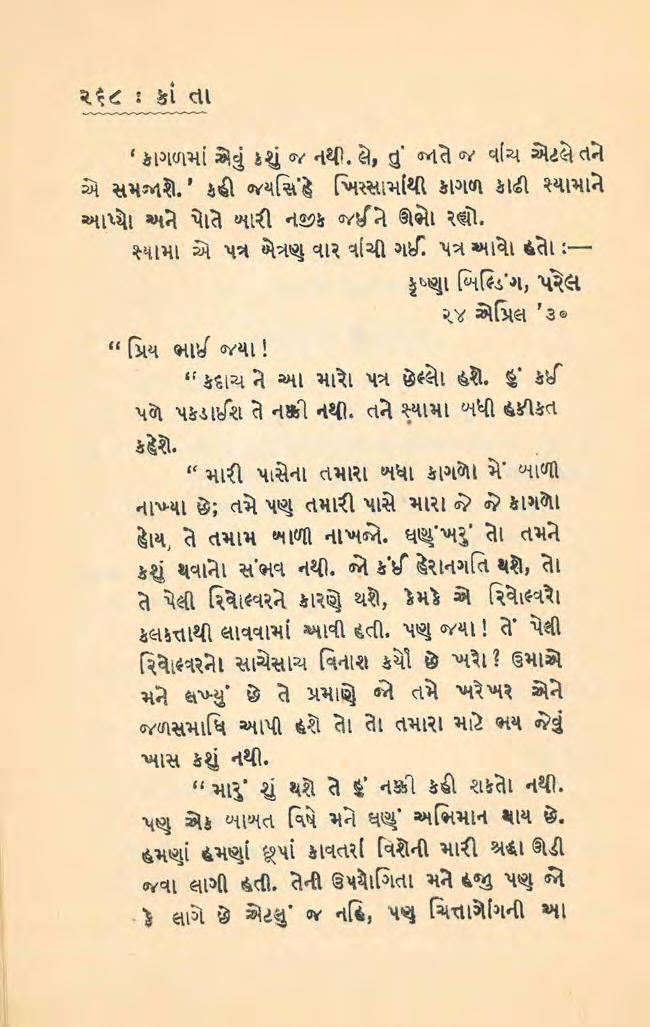 ૨૬૮ : કાં તા
‘ કાગળમાં એવું કશું જ નથી. લે, તું જાતે જ વાંચ એટલે તને
એ સમજાશે.’ કહી જયસિંહે ખિસ્સામાંથી કાગળ કાઢી શ્યામાને
આપ્યો અને પોતે બારી નજીક જઈને ઊભો રહ્યો.
શ્યામા એ પત્ર બેત્રણ વાર વાંચી ગઈ. પત્ર આવો હતો :—
કૃષ્ણા બિલ્ડિંગ, પરેલ
૨૪ એપ્રિલ ’૩૦
“ પ્રિય ભાઈ જયા !
“ કદાચ ને આ મારો પત્ર છેલ્લો હશે. હું કઈ
પળે પકડાઈશ તે નક્કી નથી. તને શ્યામા બધી હકીકત
કહેશે.
“ મારી પાસેના તમારા બધા કાગળો મેં બાળી
નાખ્યા છે; તમે પણ તમારી પાસે મારા જે જે કાગળો
હોય, તે તમામ બાળી નાખજો. ઘણુંખરું તો તમને
કશું થવાનો સંભવ નથી. જો કંઈ હેરાનગતિ થશે, તો
તે પેલી રિવોલ્વરને કારણે થશે, કેમકે એ રિવોલ્વરો
કલકત્તાથી લાવવામાં આવી હતી. પણ જયા ! તેં પેલી
રિવોલ્વરનો સાચેસાચ વિનાશ કર્યો છે ખરો ? ઉમાએ
મને લખ્યું છે તે પ્રમાણે જો તમે ખરેખર એને
જળસમાધિ આપી હશે તો તો તમારા માટે ભય જેવું
ખાસ કશું નથી.
“ મારું શું થશે તે હું નક્કી કહી શકતો નથી.
પણ એક બાબત વિષે મને ઘણું અભિમાન થાય છે.
હમણાં હમણાં છૂપાં કાવતરાં વિશેની મારી શ્રદ્ધા ઊડી
જવા લાગી હતી. તેની ઉપયોગિતા મને હજુ પણ જો
કે લાગે છે એટલું જ નહિ, પણ ચિત્તાગોંગની આ